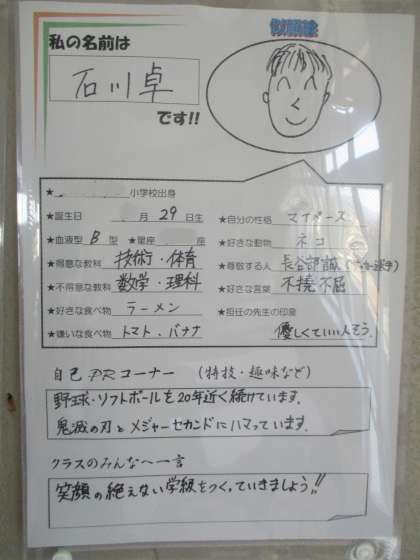 私の名前は
似顔絵
石川卓
です!!
★ 小学校出身
★誕生日 月 29 日生
★自分の性格 マイペース
★血液型 B 型 ★星座 座
★好きな動物 ネコ
★得意な教科 技術・体育
★尊敬する人 長谷部誠(サッカー選手)
★不得意な教科 数学・理科
★好きな言葉 不撓不屈
★好きな食べ物 ラーメン
★担任の先生の印象
★嫌いな食べ物 トマト、バナナ
優しくていい人そう。
自己PRコーナー (特技・趣味など)
野球・ソフトボールを20年近く続けています。
鬼滅の刃とメジャーセカンドにハマっています。
クラスのみんなへ一言
笑顔の絶えない学級をつくっていきましょう!!